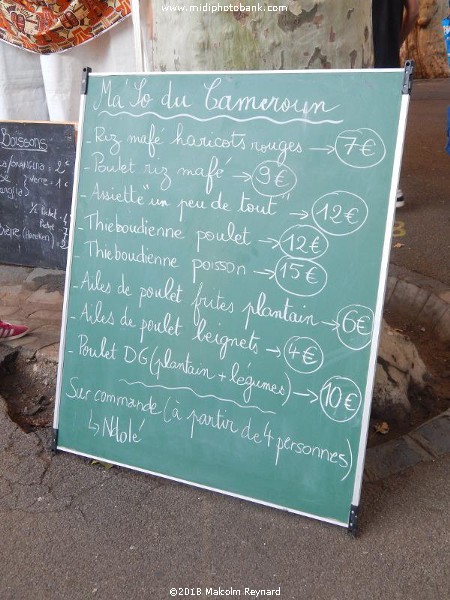 www.midiphotobank.com
Ma' So du Cameroun
- Riz mafé haricots rouges → 7€
- Poulet riz mafé → 9€
- Assiette "un peu de tout" → 12€
- Thieboudienne poulet → 12€
- Thieboudienne poisson → 15€
- Ailes de poulet frites plantain → 6€
- Ailes de poulet beignets → 4€
- Poulet DG (plantain + légumes) → 10€
Sur commande (à partir de 4 personnes)
↳ Ndolé
Boissons
©2018 Malcolm Reynard